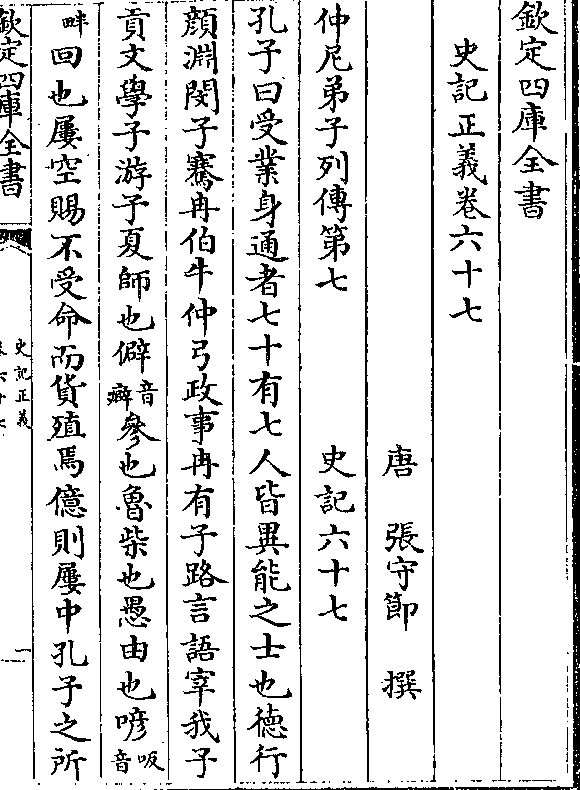 欽定四庫全書
史記正義卷六十七
唐 張守節 撰
仲尼弟子列傳第七 史記六十七
孔子曰受業身通者七十有七人皆異能之士也徳行
顔淵閔子騫冉伯牛仲弓政事冉有子路言語宰我子
貢文學子游子夏師也僻音癖參也魯柴也愚由也喭音呠
畔回也屢空賜不受命而貨殖焉億則屢中孔子之所
欽定四庫全書
史記正義
卷六十七
一